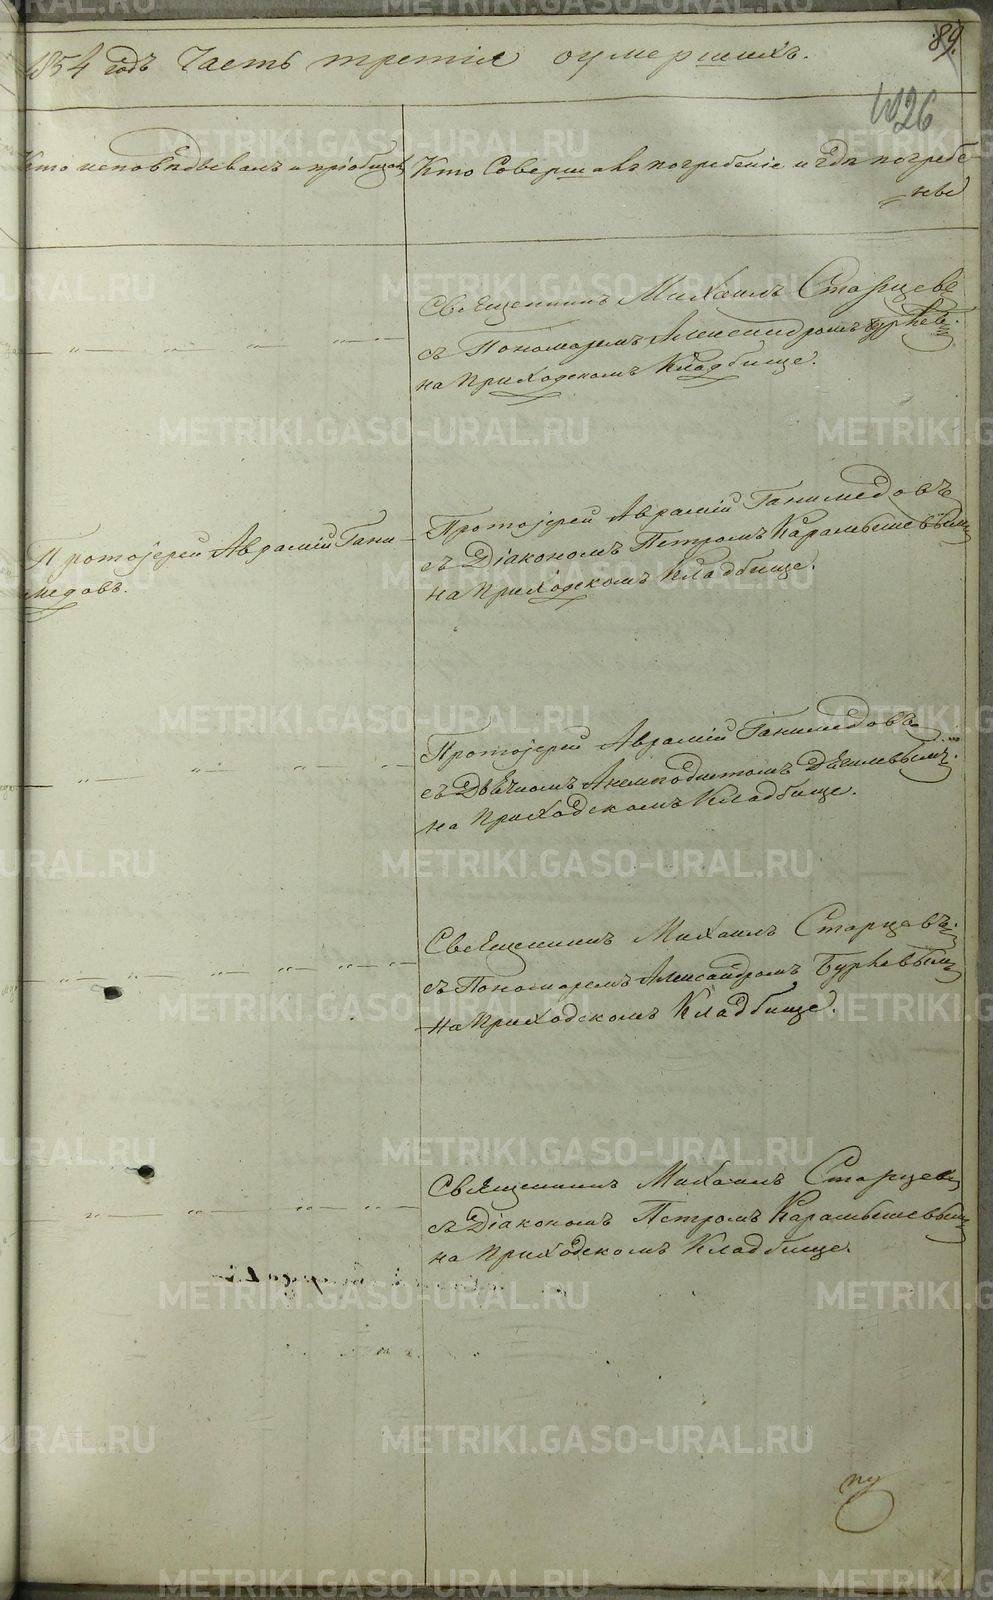 89.
1854 годъ Часть третія оумершихъ.
426
Кто исповѣдывалъ и пріобщалъ
Кто Совершалъ погребеніе и гдѣ погребе
ны
Священникъ Михаилъ Старцевъ
съ Пономаремъ Александромъ
на Приходскомъ Кладбище.
Протоіерей Аврамій Гани
медовъ.
Протоіерей Аврамій Ганимедовъ
съ Діакономъ Петромъ Карамышевымъ
на Приходскомъ Кладбище.
Протоіерей Аврамій Ганимедовъ
съ Дьячкомъ
на Приходскомъ Кладбище.
Священникъ Михаилъ Старцевъ
съ Пономаремъ Александромъ Бурневымъ
на Приходскомъ Кладбище.
Священникъ Михаилъ Старцевъ
съ Діакономъ Петромъ Карамышевымъ
на Приходскомъ Кладбище.
METRIKI.GASO-URAL.RU